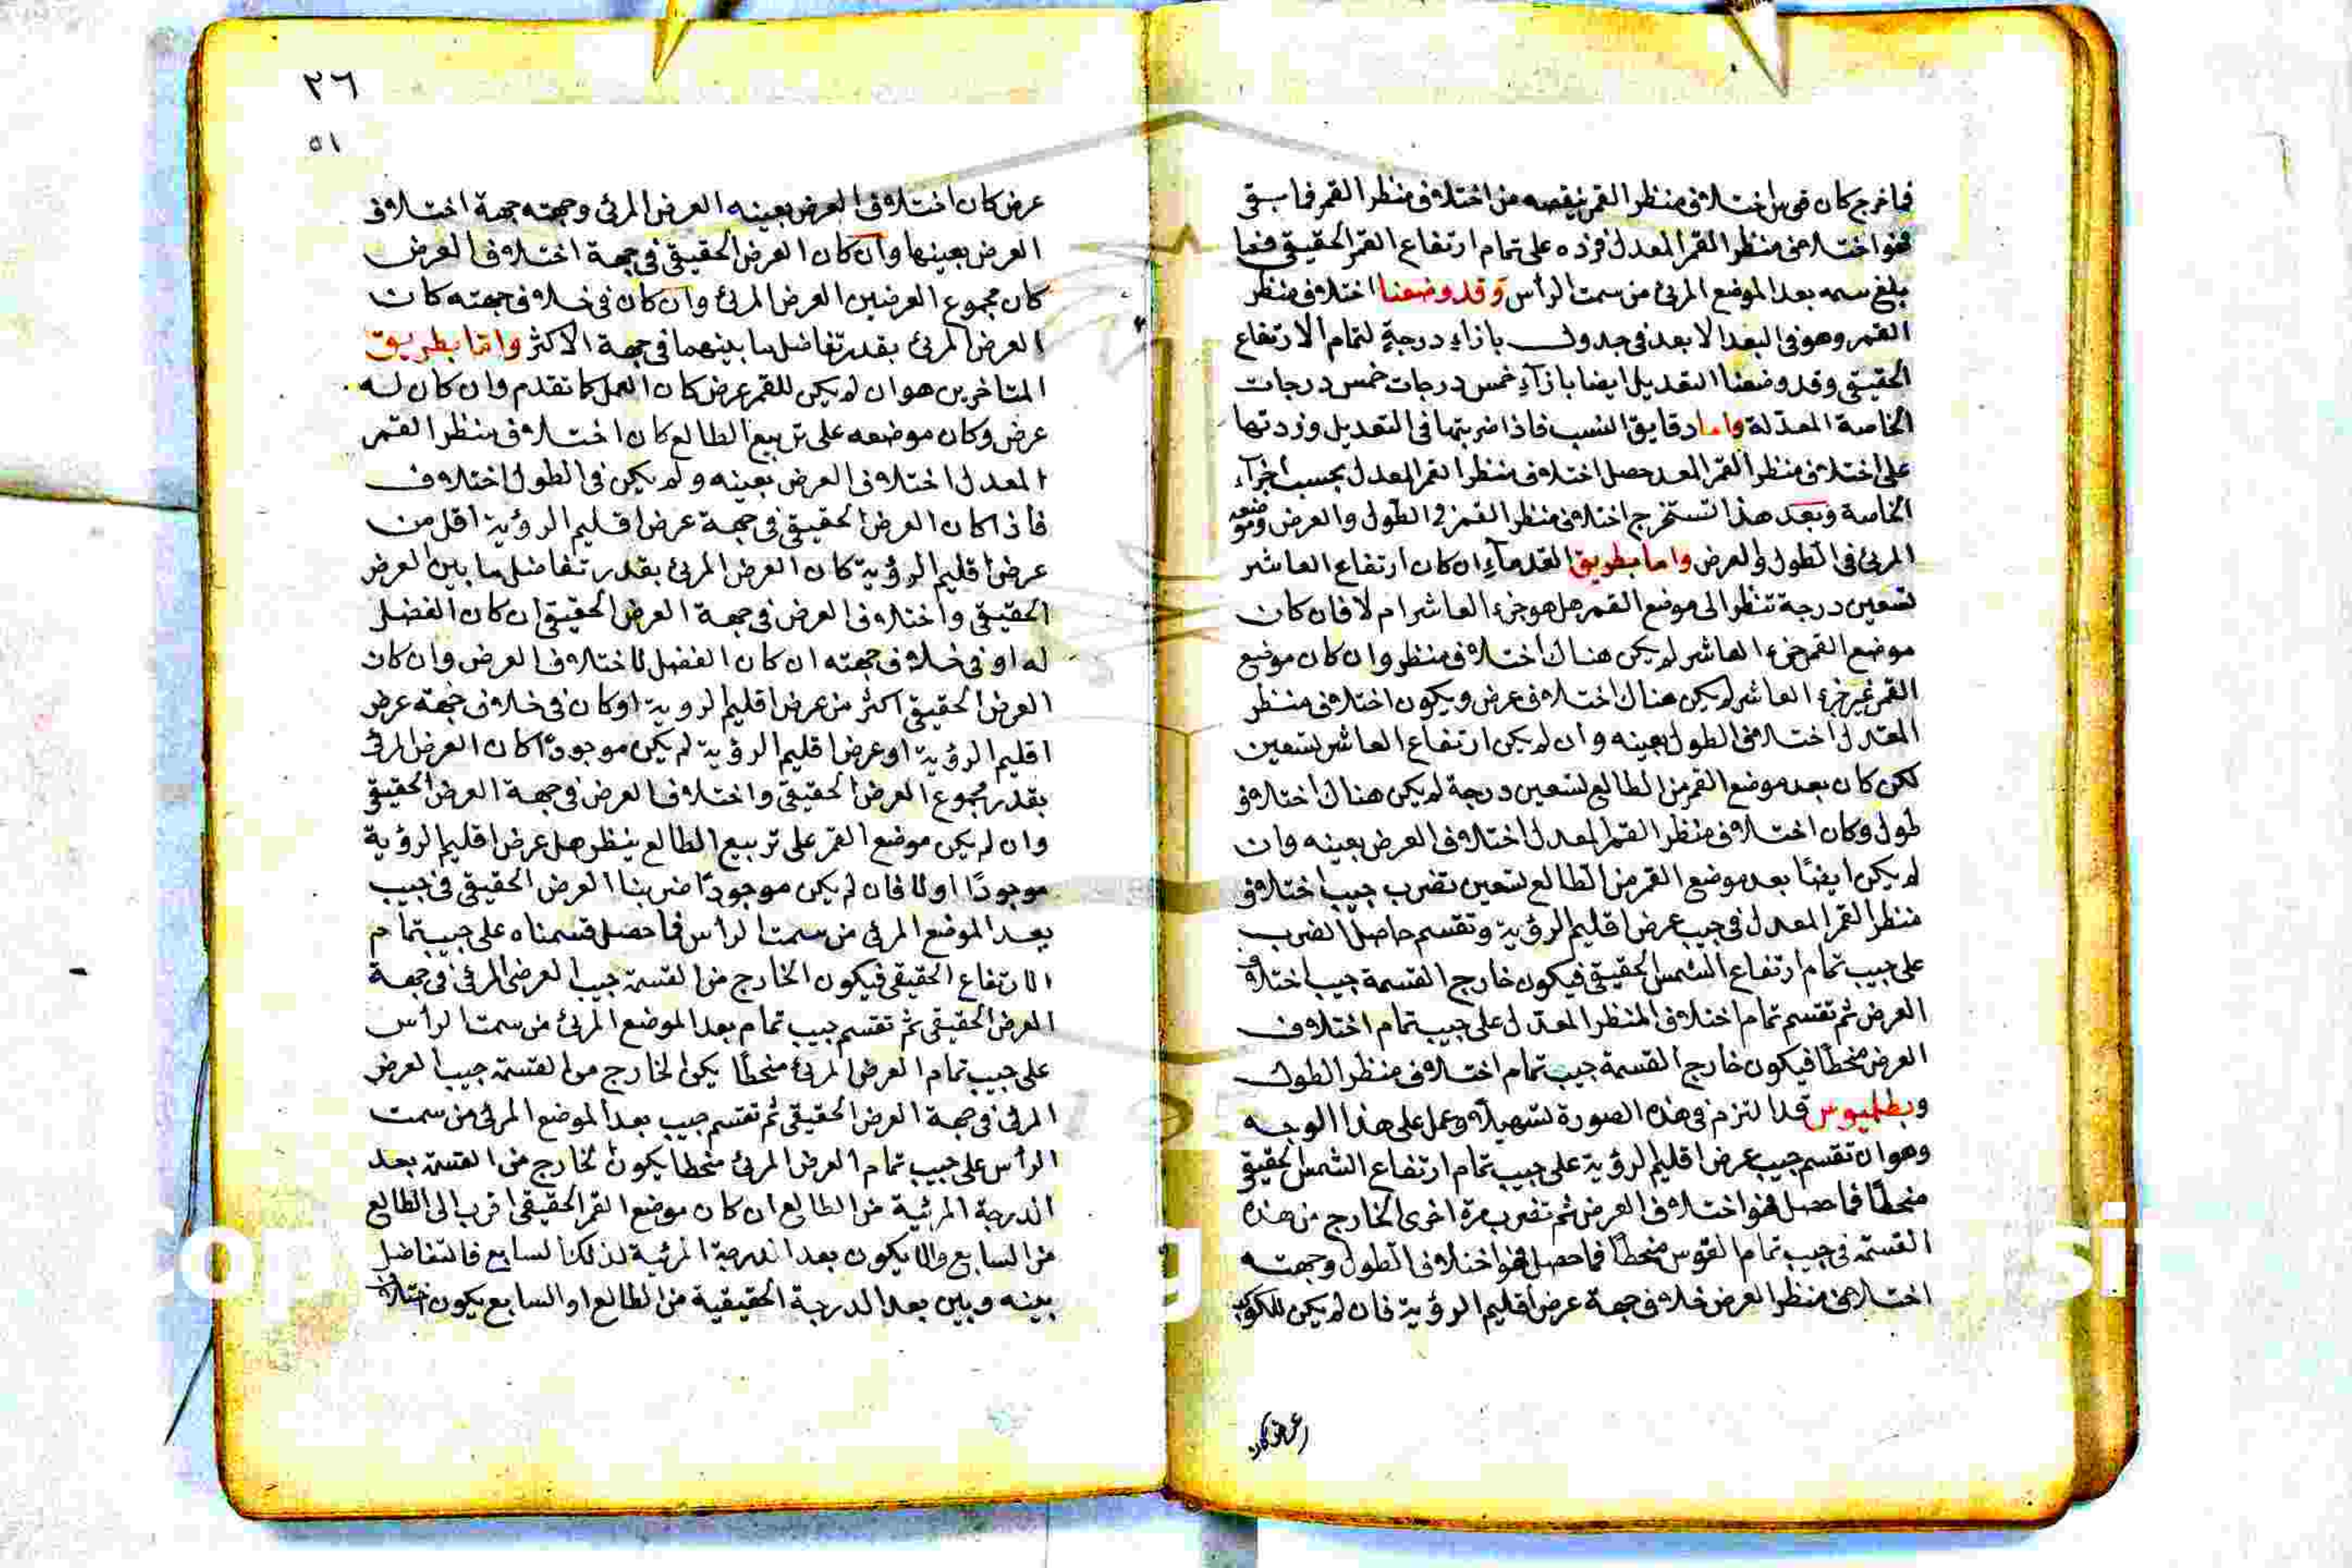 فما خرج كان قوس اختلاف منظر القمر ينقصه من اختلاف منظر القمر فما يبقى
فهو اختلاف منظر القمر المعدل فزده على تمام ارتفاع القمر الحقيقي فما
بلغ سمه بعد الموضع المرئي من سمت الرأس وقد وضعنا اختلاف منظر
القمر وهو في البعد الابعد في جدول بازاء درجة درجة لتمام الارتفاع
الحقيقي وقد وضعنا التعديل ايضا بازآء خمس درجات خمس درجات
الخاصة المعدلة واما دقايق النسب فاذا ضربتها في التعديل وزدتها
على اختلاف منظر القمر المعد حصل اختلاف منظر القمر المعدل بحسب اجزآء
الخاصة وبعد هذا تستخرج اختلاف منظر القمر في الطول والعرض وموضعه
المرئي في الطول والعرض واما بطريق القدماء ان كان ارتفاع العاشر
تسعين درجة تنظر الى موضع القمر هل هو جزء العاشر ام لا فان كان
موضع القمر جزء العاشر لم يكن هناك اختلاف منظر وان كان موضع
القمر غير جزء العاشر لم يكن هناك اختلاف عرض ويكون اختلاف منظر
المعدل اختلاف الطول بعينه وان لم يكن ارتفاع العاشر تسعين
لكن كان بعد موضع القمر من الطالع تسعين درجة لم يكن هناك اختلاف
طول وكان اختلاف منظر القمر المعدل اختلاف العرض بعينه وان
لم يكن ايضًا بعد موضع القمر من الطالع تسعين تضرب جيب اختلاف
منظر القمر المعدل في جيب عرض اقليم الرؤية وتقسم حاصل الضرب
على جيب تمام ارتفاع الشمس الحقيقي فيكون خارج القسمة جيب اختلاف
العرض ثم تقسم تمام اختلاف المنظر المعدل على جيب تمام اختلاف
العرض منحطًا فيكون خارج القسمة جيب تمام اختلاف منظر الطول
وبطلميوس قد التزم في هذه الصورة تسهيلا وعمل على هذا الوجه
وهو ان تقسم جيب عرض اقليم الرؤية على جيب تمام ارتفاع الشمس الحقيقي
منحطًا فما حصل فهو اختلاف العرض ثم تضرب مرة اخرى الخارج من هذه
القسمة في جيب تمام القوس منحطًا فما حصل فهو اختلاف الطول وجهته
اختلاف منظر العرض خلاف جهة عرض اقليم الرؤية فان لم يكن للكوكب
عرض كان
٢٦
٥١
عرض كان اختلاف العرض بعينه العرض المرئي وجهته جهة اختلاف
العرض بعينها وان كان العرض الحقيقي في جهة اختلاف العرض
كان مجموع العرضين العرض المرئي وان كان في خلاف جهته كان
العرض المرئي بقدر تفاضل ما بينهما في جهة الاكثر واما بطريق
المتاخرين هو ان لم يكن للقمر عرض كان العمل كما تقدم وان كان له
عرض وكان موضعه على تربيع الطالع كان اختلاف منظر القمر
المعدل اختلاف العرض بعينه ولم يكن في الطول اختلاف
فاذا كان العرض الحقيقي في جهة عرض اقليم الرؤية اقل من
عرض اقليم الرؤية كان العرض المرئي بقدر تفاضل ما بين العرض
الحقيقي واختلاف العرض في جهة العرض الحقيقي ان كان الفضل
له او في خلاف جهته ان كان الفضل لاختلاف العرض وان كان
العرض الحقيقي اكثر من عرض اقليم الروية او كان في خلاف جهة عرض
اقليم الرؤية او عرض اقليم الرؤية لم يكن موجودًا كان العرض المرئي
بقدر مجموع العرض الحقيقي واختلاف العرض في جهة العرض الحقيقي
وان لم يكن موضع القمر على تربيع الطالع ينظر هل عرض اقليم الرؤية
موجودًا اولا فان لم يكن موجودًا ضربنا العرض الحقيقي في جيب
بعد الموضع المرئي من سمت الرأس فما حصل قسمناه على جيب تمام
الارتفاع الحقيقي فيكون الخارج من القسمة جيب العرض المرئي في جهة
العرض الحقيقي ثم تقسم جيب تمام بعد الموضع المرئي من سمت الرأس
على جيب تمام العرض المرئي منحطًا يكن الخارج من القسمة جيب العرض
المرئي في جهة العرض الحقيقي ثم تقسم جيب بعد الموضع المرئي من سمت
الرأس على جيب تمام العرض المرئي منحطا يكون الخارج من القسمة بعد
الدرجة المرئية من الطالع ان كان موضع القمر الحقيقي اقرب الى الطالع
من السابع والا يكون بعد الدرجة المرئية لذلك السابع فالتفاضل
بينه وبين بعد الدرجة الحقيقية من الطالع او السابع يكون اختلاف